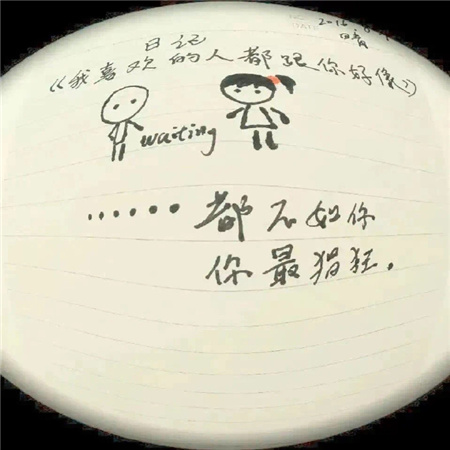 日记
《我喜欢的人都跟你好像》
waiting
······都不如你
你最猖狂.